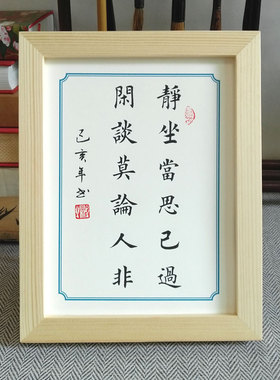 靜坐當思己過
閑談莫論人非
己亥年书